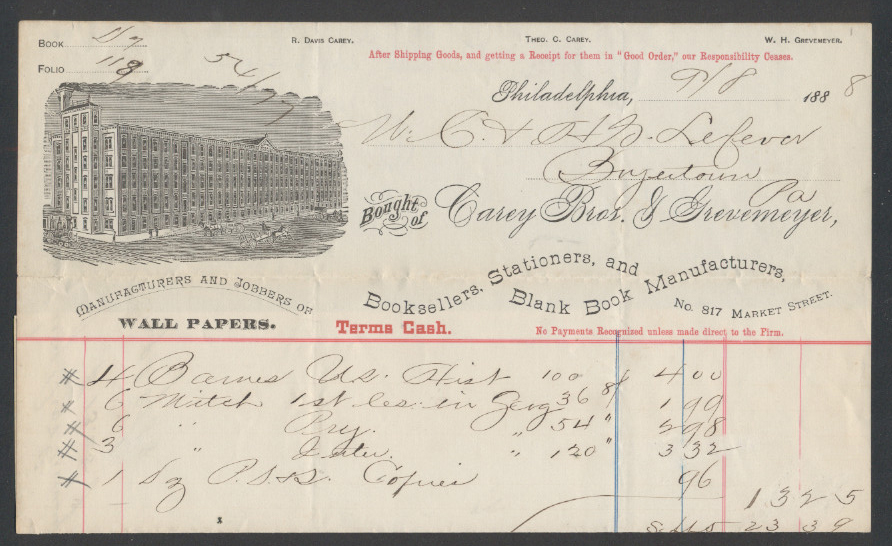 BOOK
FOLIO 118
54/17
R. DAVIS CAREY. THEO. C. CAREY. W. H. GREVEMEYER.
After Shipping Goods, and getting a Receipt for them in "Good Order," our Responsibility Ceases.
Philadelphia, 9/8 1888
W. C. & Lefever
Boyertown
Pa
Bought of Carey Bros. & Grevemeyer,
MANUFACTURERS AND JOBBERS OF
WALL PAPERS.
Booksellers, Stationers, and
Blank Book Manufacturers,
No. 817 MARKET STREET.
Terms Cash. No Payments Recognized unless made direct to the Firm.
4 Barnes Us. Hist 100 400
6 Mitch 1st les. in Geog 36 199
6 " Pry. " 54 " 298
3 " Inter. " 120 " 332
1 Dz P.S.& D. Copies 96
1325
2339